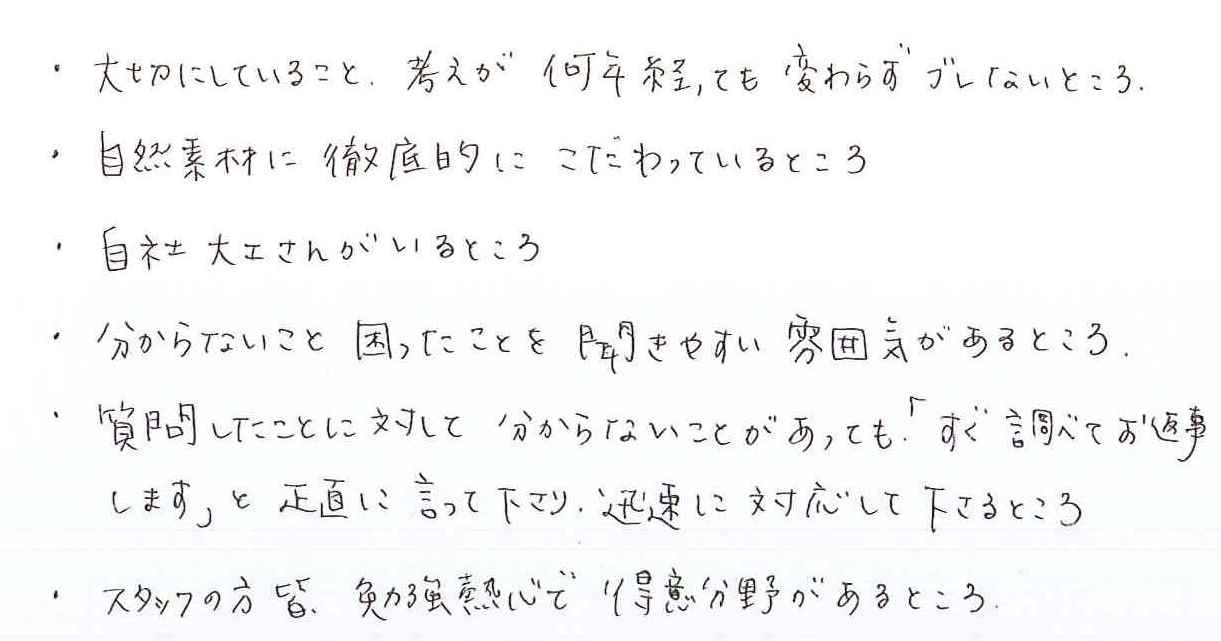 ・大切にしていること、考えが何年経っても変わらずブレないところ.
・自然素材に徹底的にこだわっているところ
・自社大工さんがいるところ
・分からないこと困ったことを聞きやすい雰囲気があるところ.
・質問したことに対して分からないことがあっても、「すぐ調べてお返事
します」と正直に言って下さり、迅速に対応して下さるところ
・スタッフの方皆、勉強熱心で得意分野があるところ.